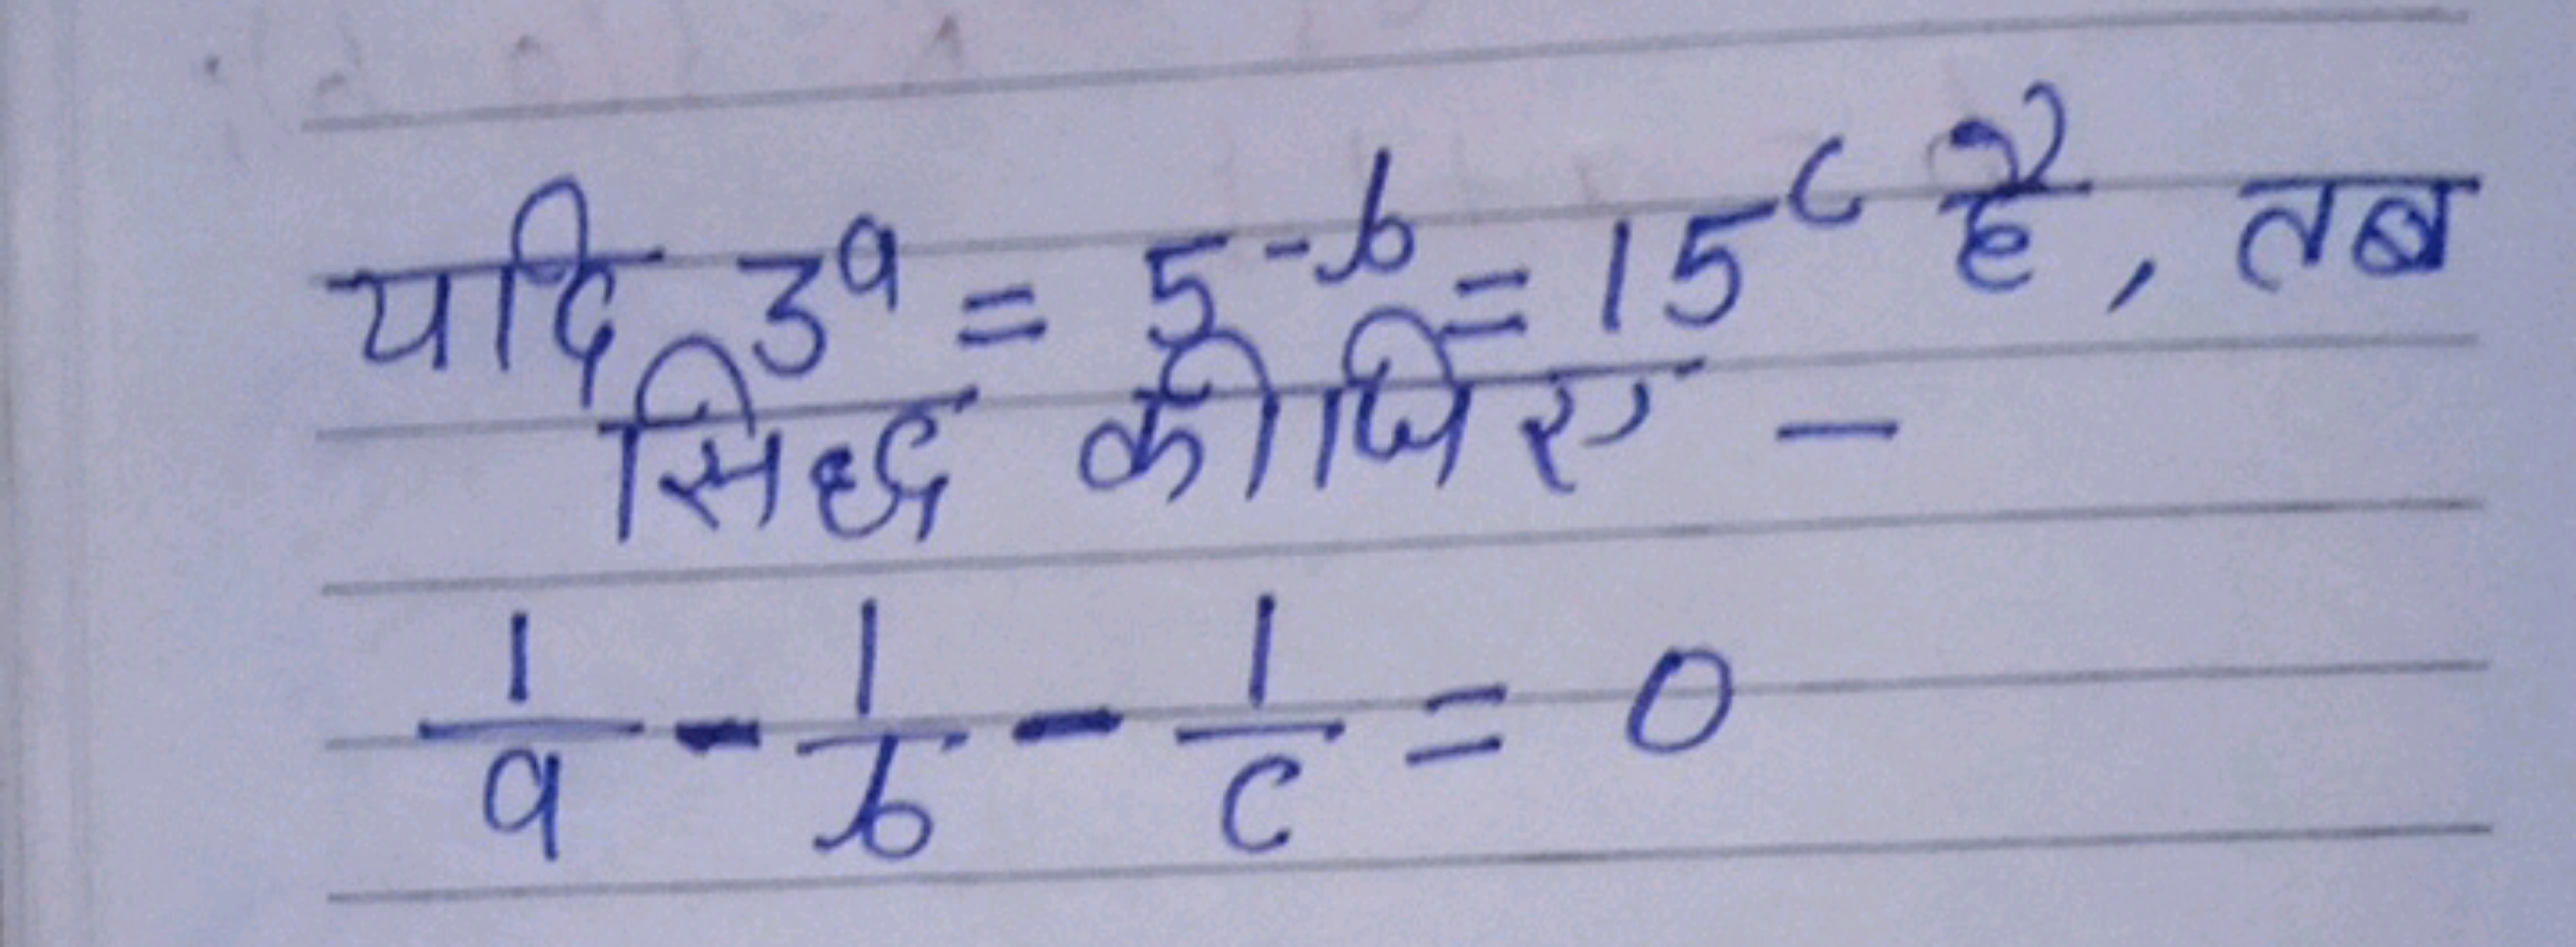 यदि 3^a = 5^-b = 15^c है, तब
सिद्ध कीजिए –
1/a - 1/b - 1/c = 0